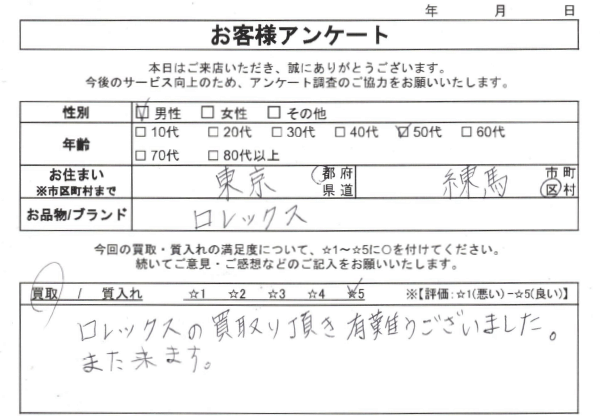 年 月 日
お客様アンケート
本日はご来店いただき、誠にありがとうございます。
今後のサービス向上のため、アンケート調査のご協力をお願いいたします。
性別 ☑男性 □女性 □その他
年齢 □10代 □20代 □30代 □40代 ☑50代 □60代
□70代 □80代以上
お住まい ※市区町村まで 東京 都府県道 練馬 市町区村
お品物/ブランド ロレックス
今回の買取・質入れの満足度について、☆1～☆5に○を付けてください。
続いてご意見・ご感想などのご記入をお願いいたします。
買取 / 質入れ ☆1 ☆2 ☆3 ☆4 ☆5 ※【評価:☆1(悪い)−☆5(良い)】
ロレックスの買取り頂き有難うございました。
また来ます。